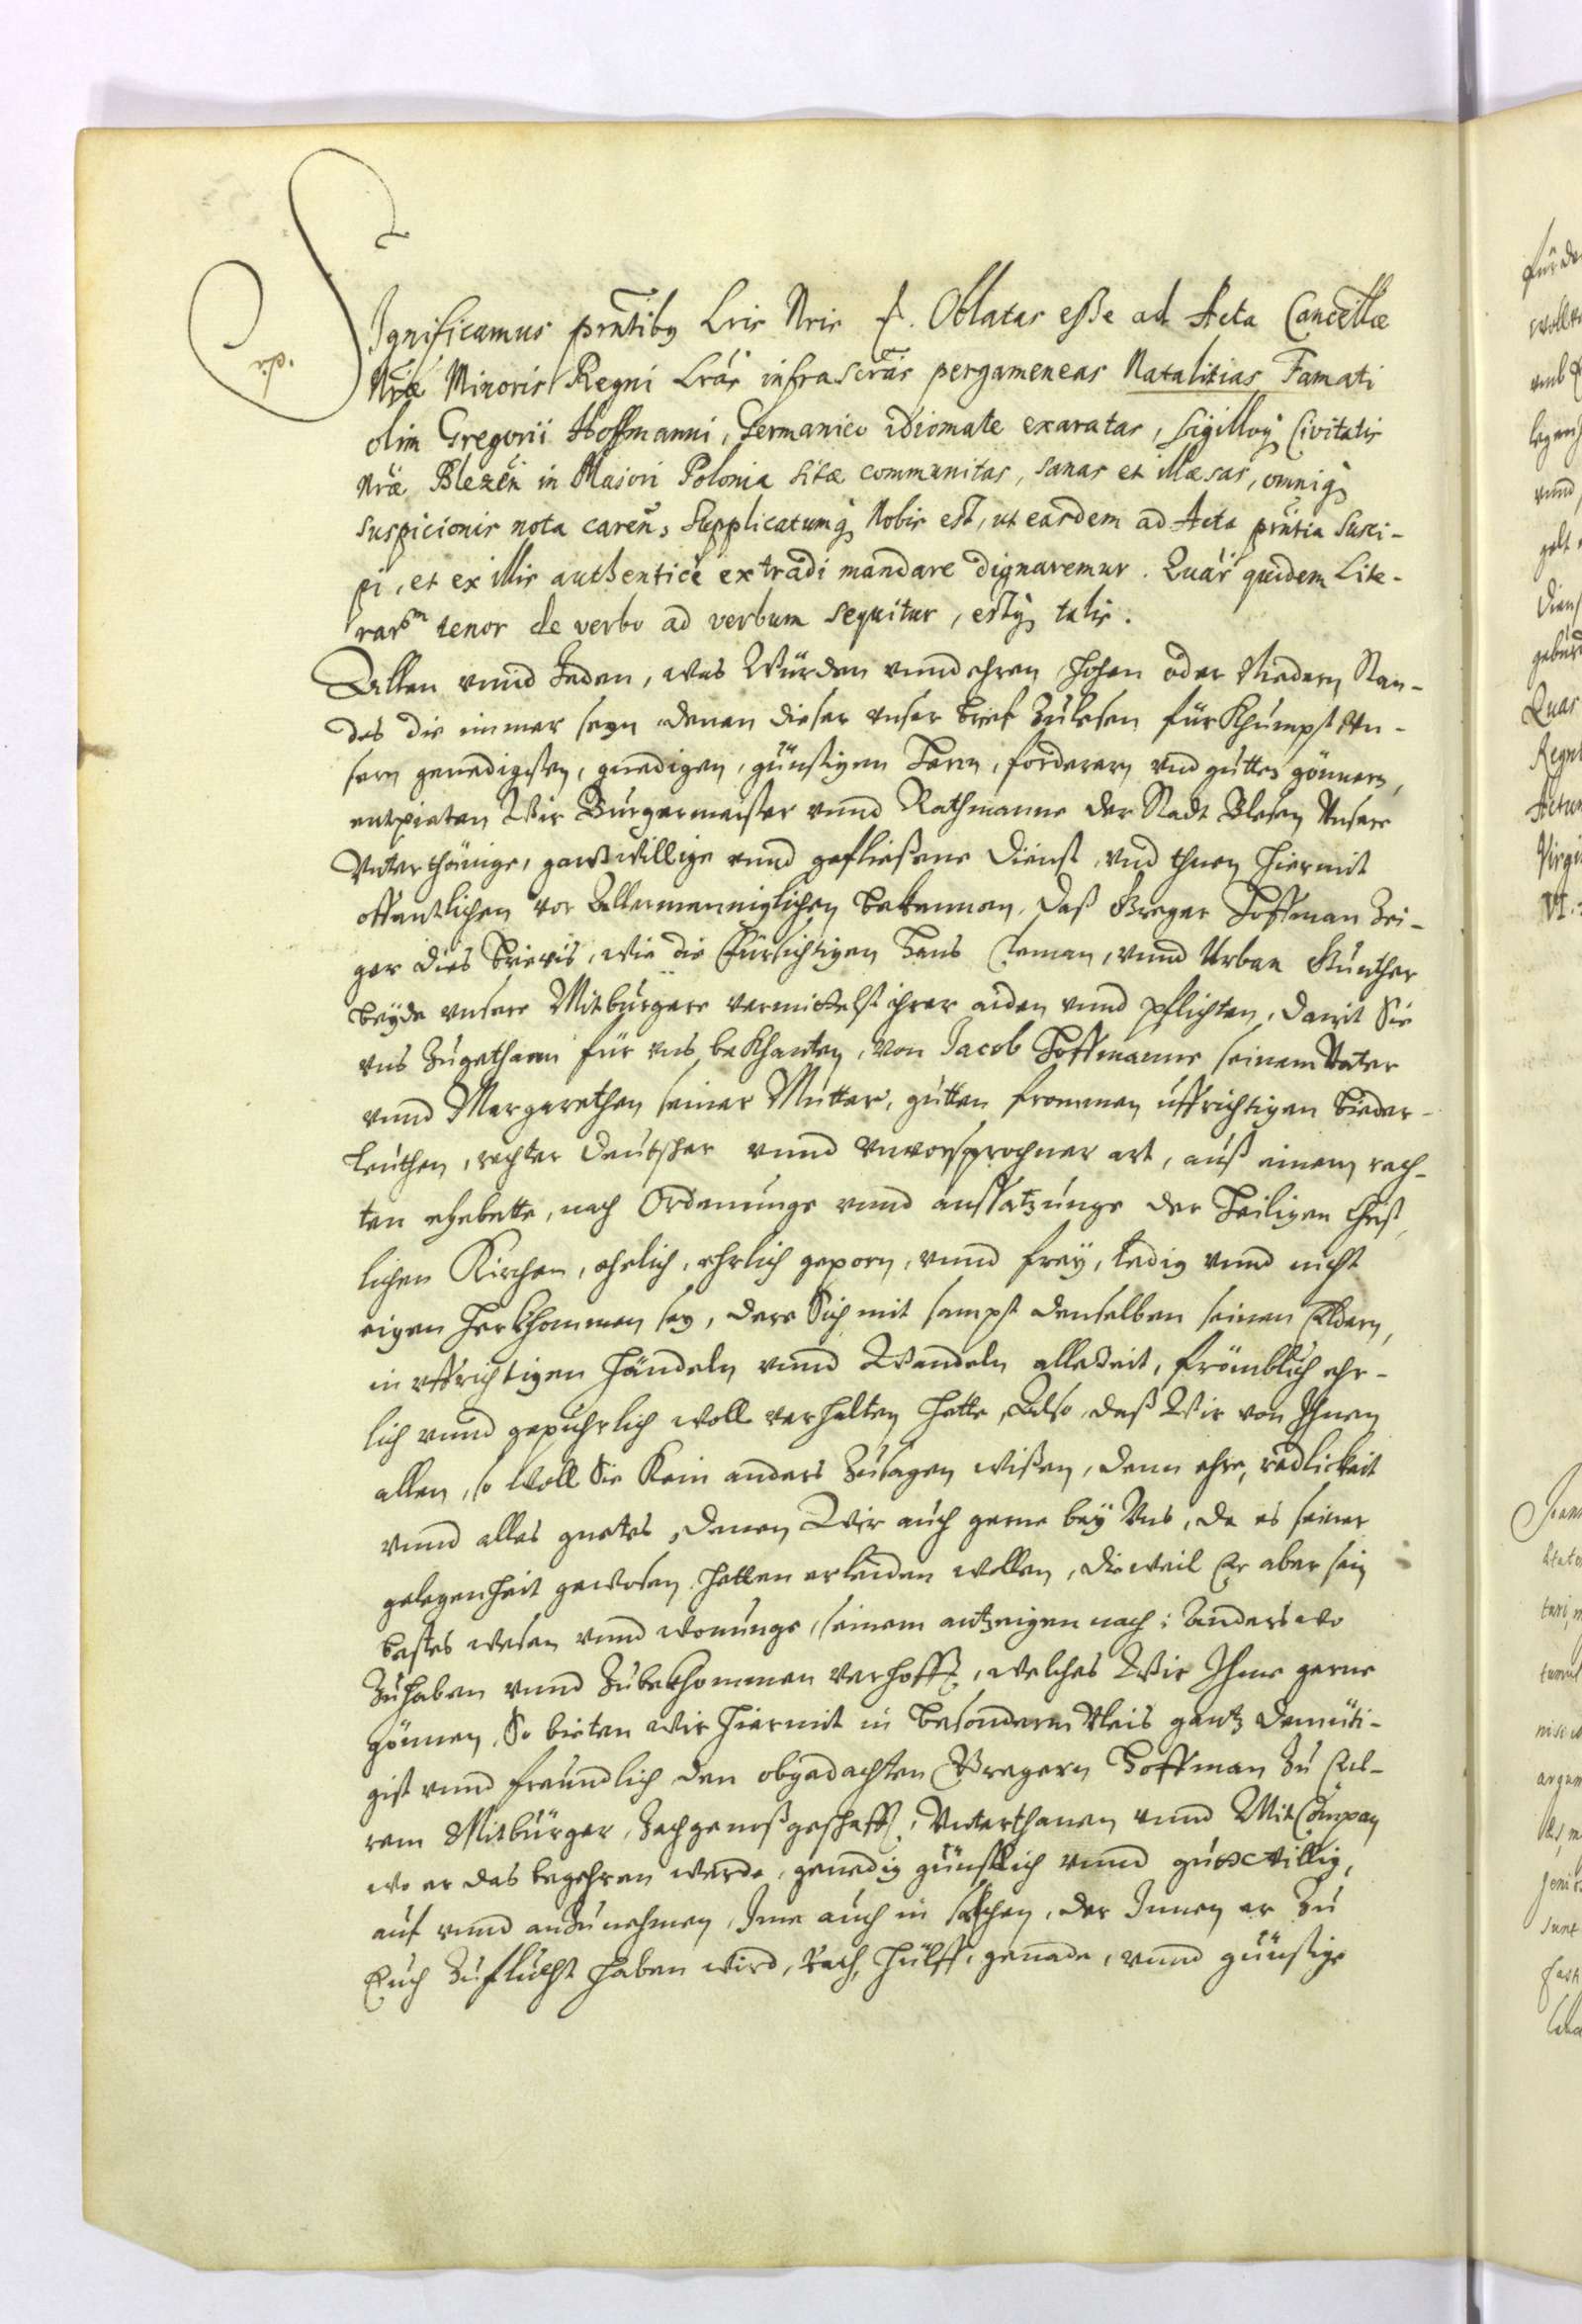 Significamus prntibus Lris Nris &. Oblatas eße ad Acta Cancellæ
Nræ Minoris Regni Lras infrascras pergameneas Natalitias Famati
olim Gregorii Hoffmanni, Germanico idiomate exaratas, sigilloq Civitatis
Nræ Blezen in Maiori Polonia sitæ communitas, sanas et illæsas, omniq
suspicionis nota caren, Supplicatumq Nobis est, ut easdem ad Acta prntia susci-
pi, et ex illis authenticè extradi mandare dignaremur. Quar quidem Lite-
rarum tenor de verbo ad verbum sequitur, estq talis.
Allen vnnd Jeden, was Würden vnnd ehren hohen oder Niedern Stan-
des die immer seyn denen dieser vnser brief zulesen für Khumpst Vn-
sern genedigsten, gnedigen, günstigen Herrn, forderern vnd guttes gönnern,
entpieten Wir Burgermeister vnnd Rathmanne der Stadt Blesen Vnsere
Vnterthönige, ganzwillige vnnd gefließene Dienst, vnd thuen hiermit
offentlichen vor Allermenniglichen bekennen, daß Greger Hoffman Zei-
ger dies brieves, wie die Fürsichtigen Hans Leman, vnnd Urban Gunther
beÿde vnsere Mitbürgere vermittelst ihrer aiden vnnd pflichten, damit Sie
vns zugethaen für vns bekhanten, von Jacob Hoffmanne seinem Vater
vnnd Margarethen seiner Mutter, gutten frommen uffrichtigen bieder-
leuthen, rechter Deutscher vnnd vnvorsprochner art, auß einem rech-
ten ehebette, nach Ordenunge vnnd auffsatzunge der Heiligen Christ
lichen Kirchen, ehelich, ehrlich geporn, vnnd freÿ, ledig vnnd nicht
eigen herkhommen sey, dere Sich mit sampt denselben seinen Eldern,
in uffrichtigen händeln vnnd Wandeln allezeit, frömblich ehr-
lich vnnd gepuhrlich woll verhalten hatte, Also, daß Wir von Ihnen
allen, so woll Sie Kein anders zusagen wißen, denn ehre, redlickeit
vnnd alles guetes, denen Wir auch gerne beÿ Vns, da es seiner
gelegenheit gewesen, hetten erleiden wollen, dieweil Er aber sein
bestes wesen vnnd wonunge, seinem antzeigen nach: Anderswo
zuhaben vnnd zubekhommen verhofft, welches Wir Ihme gerne
gönnen, So bieten wir hiermit in besonderm Vleis gantz demüti-
gist vnnd freundlich den obgedachten Gregern Hoffman zu Eu-
rem Mitbürger, Zechgenoßgeschafft, Vnterthanen vnnd MitCompan
wo er das begehren werde, genedig günstlich vnnd gutwillig,
auf vnnd anzunehmen, Ime auch in sachen, der Innen er zu
Euch zuflucht haben wird, Rath, hülff, genade, vnnd günstige